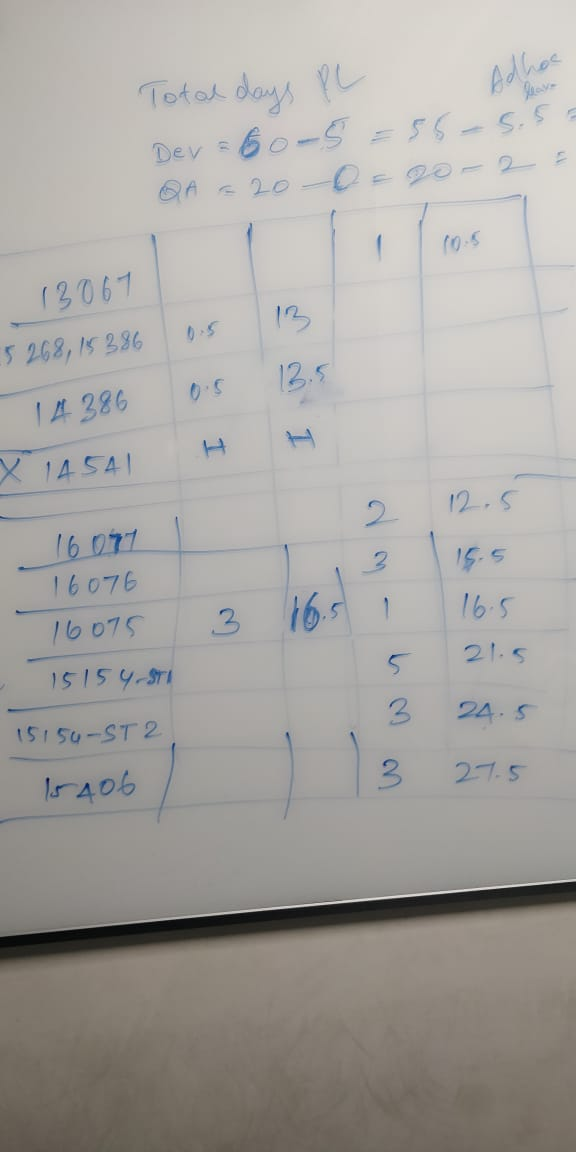 Total days PL Adhoc
leave
Dev = 60 - 5 = 55 - 5.5 =
QA = 20 - 0 = 20 - 2 =
13067 1 10.5
5268, 15386 0.5 13
14386 0.5 13.5
X 14541 H H
16077 2 12.5
16076 3 15.5
16075 3 16.5 1 16.5
15154-ST1 5 21.5
15154-ST2 3 24.5
15406 3 27.5